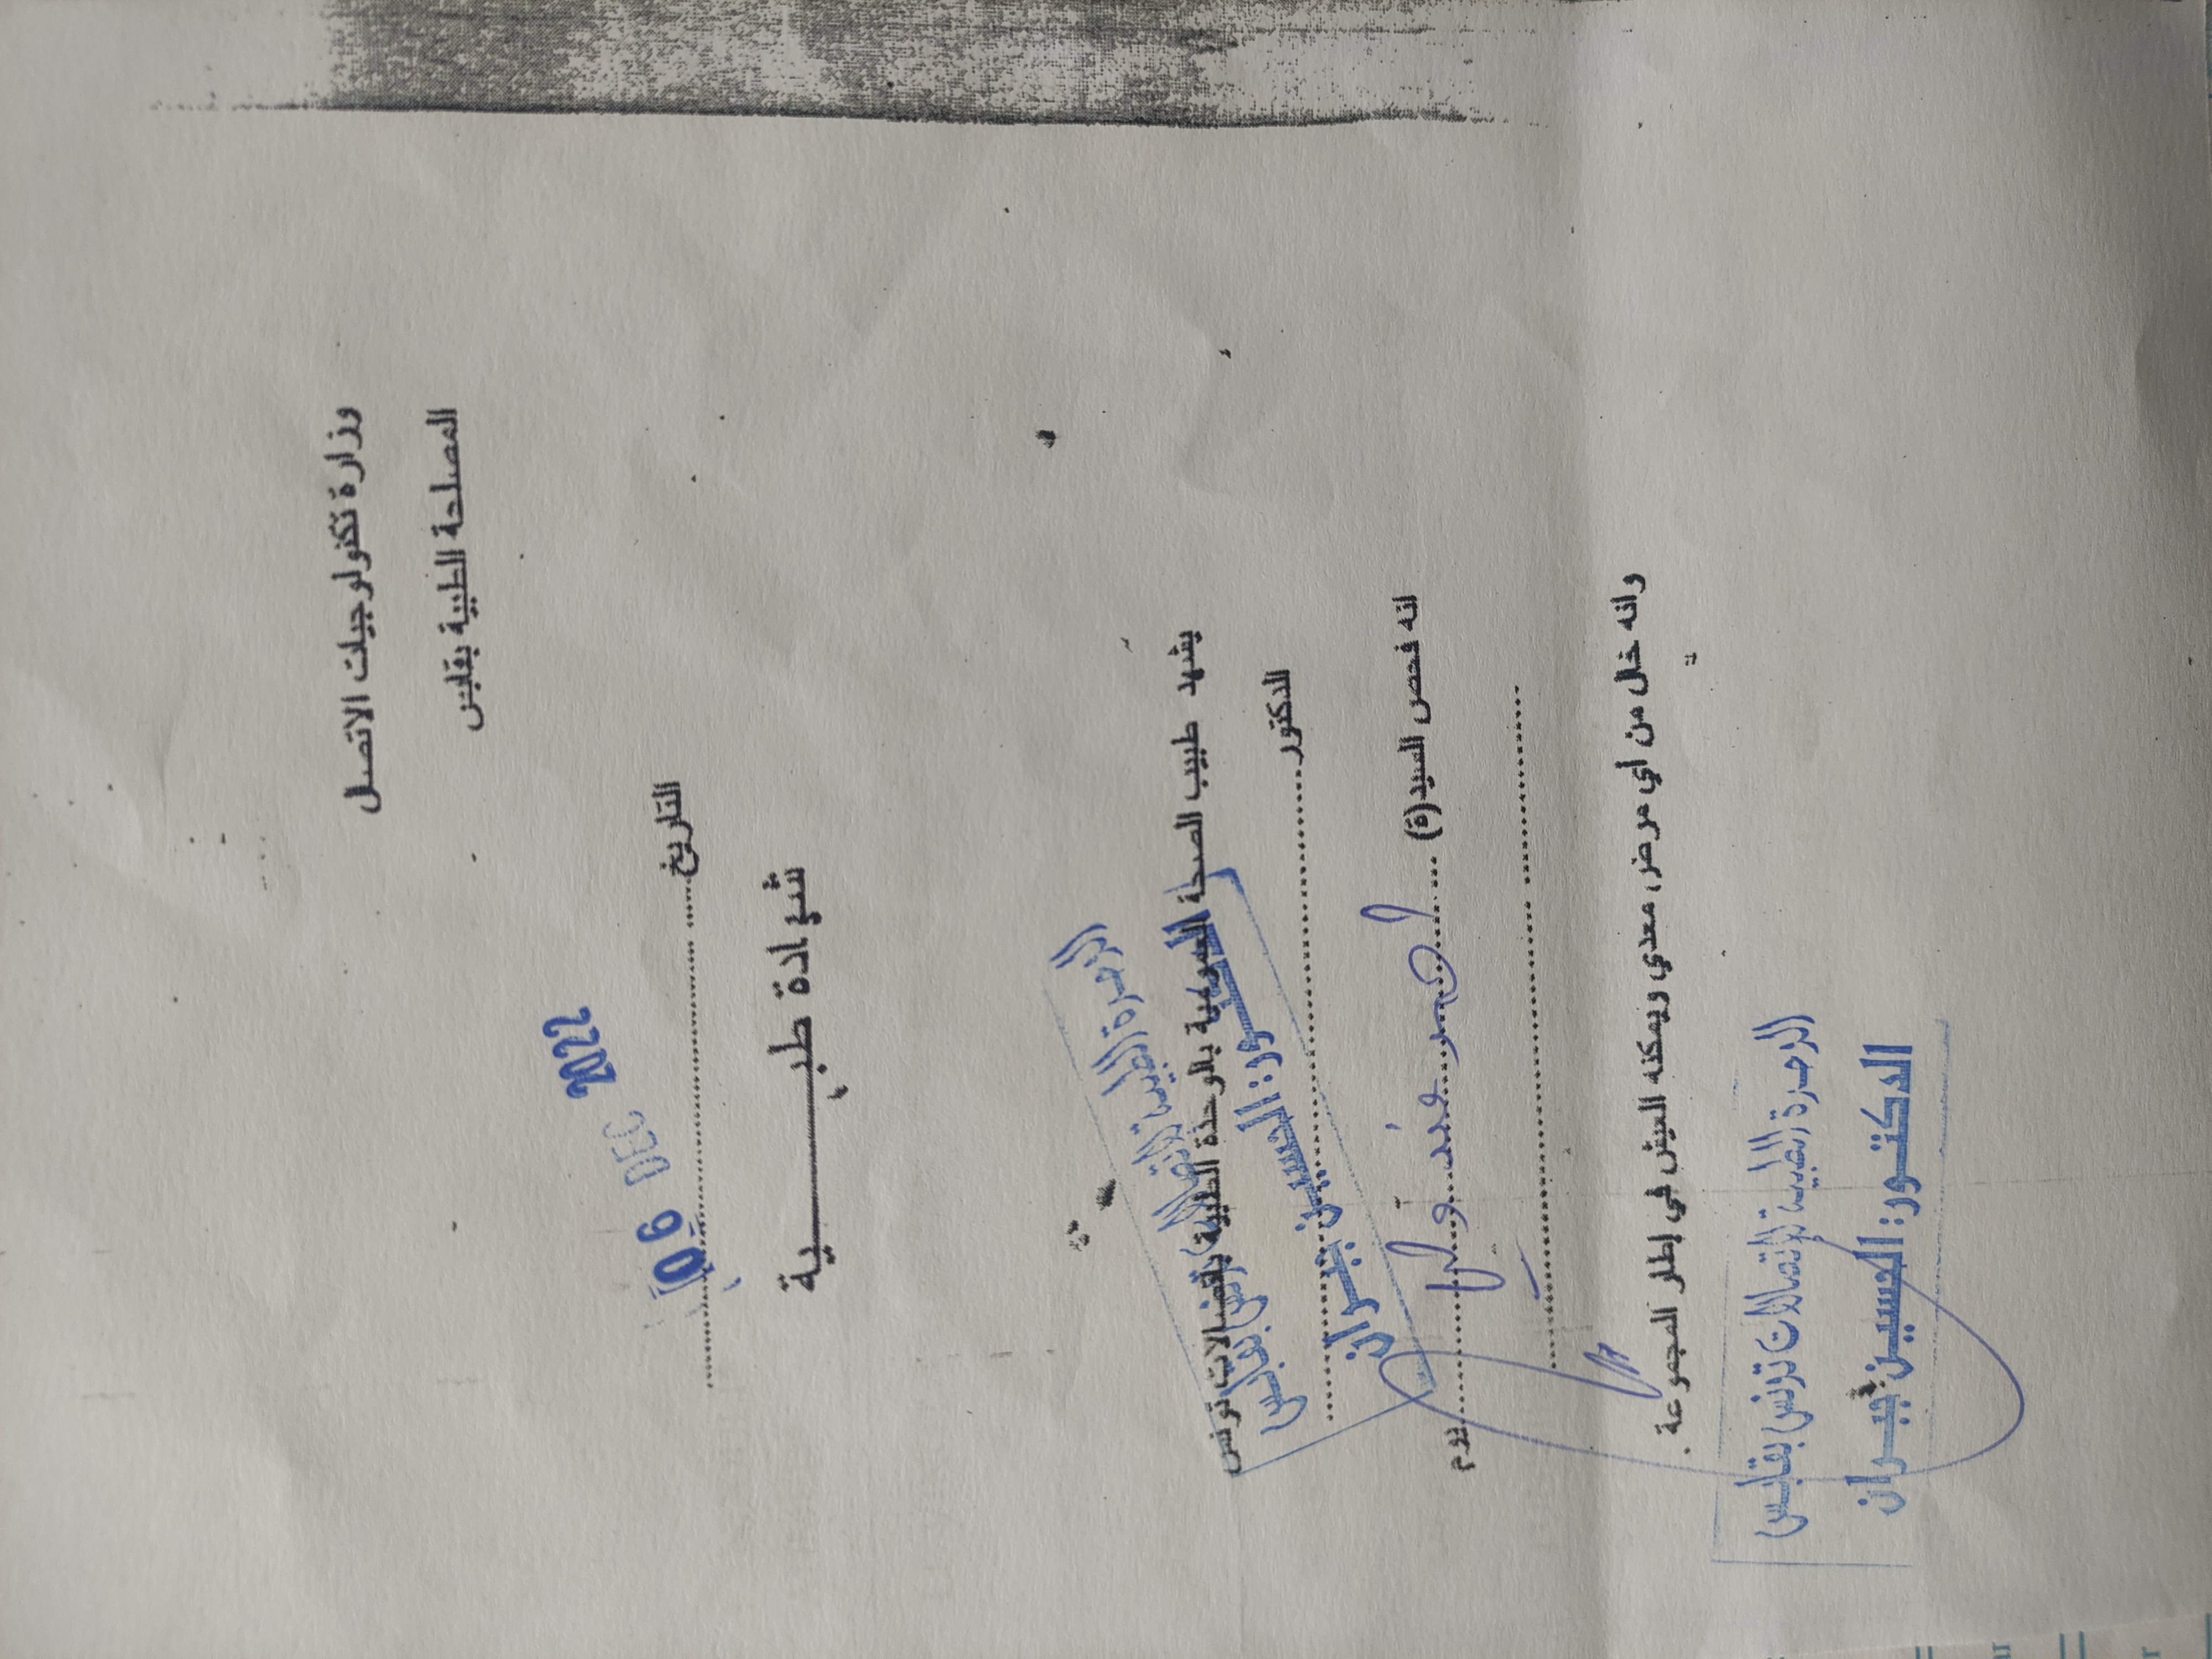 وزارة تكنولوجيات الاتصال
المصلحة الطبية بقابس
التاريخ
06 DEC 2022
شهادة طبية
يشهد طبيب الصحة العمومية بالوحدة الطبية بقابس لاتصالات تونس
الدكتور
الوحدة الطبية لاتصالات تونس بقابس
الدكتور: الحسين جبران
انه فحص السيد(ة) يوم
وانه خال من أي مرض معدي ويمكنه العيش في إطار المجموعة.
الوحدة الطبية لإتصالات تونس بقابس
الدكتور: الحسين جبران